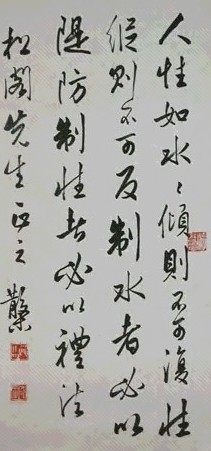 人性如水〻傾則不可復性
縱則不可反制水者必以
隄防制性者必以禮法
松閣先生正之 槃